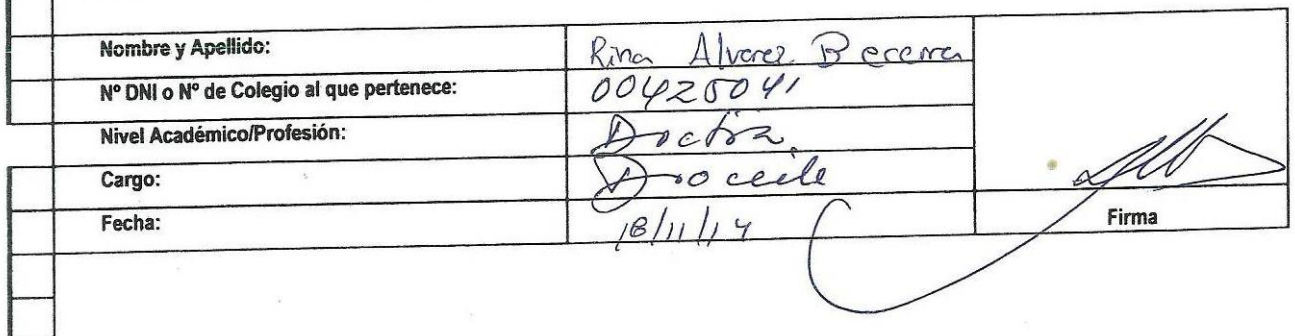 Nombre y Apellido: Rina Alvarez Becerra
Nº DNI o Nº de Colegio al que pertenece: 00425041
Nivel Académico/Profesión: Doctora
Cargo:
Fecha: 18/11/14
Firma